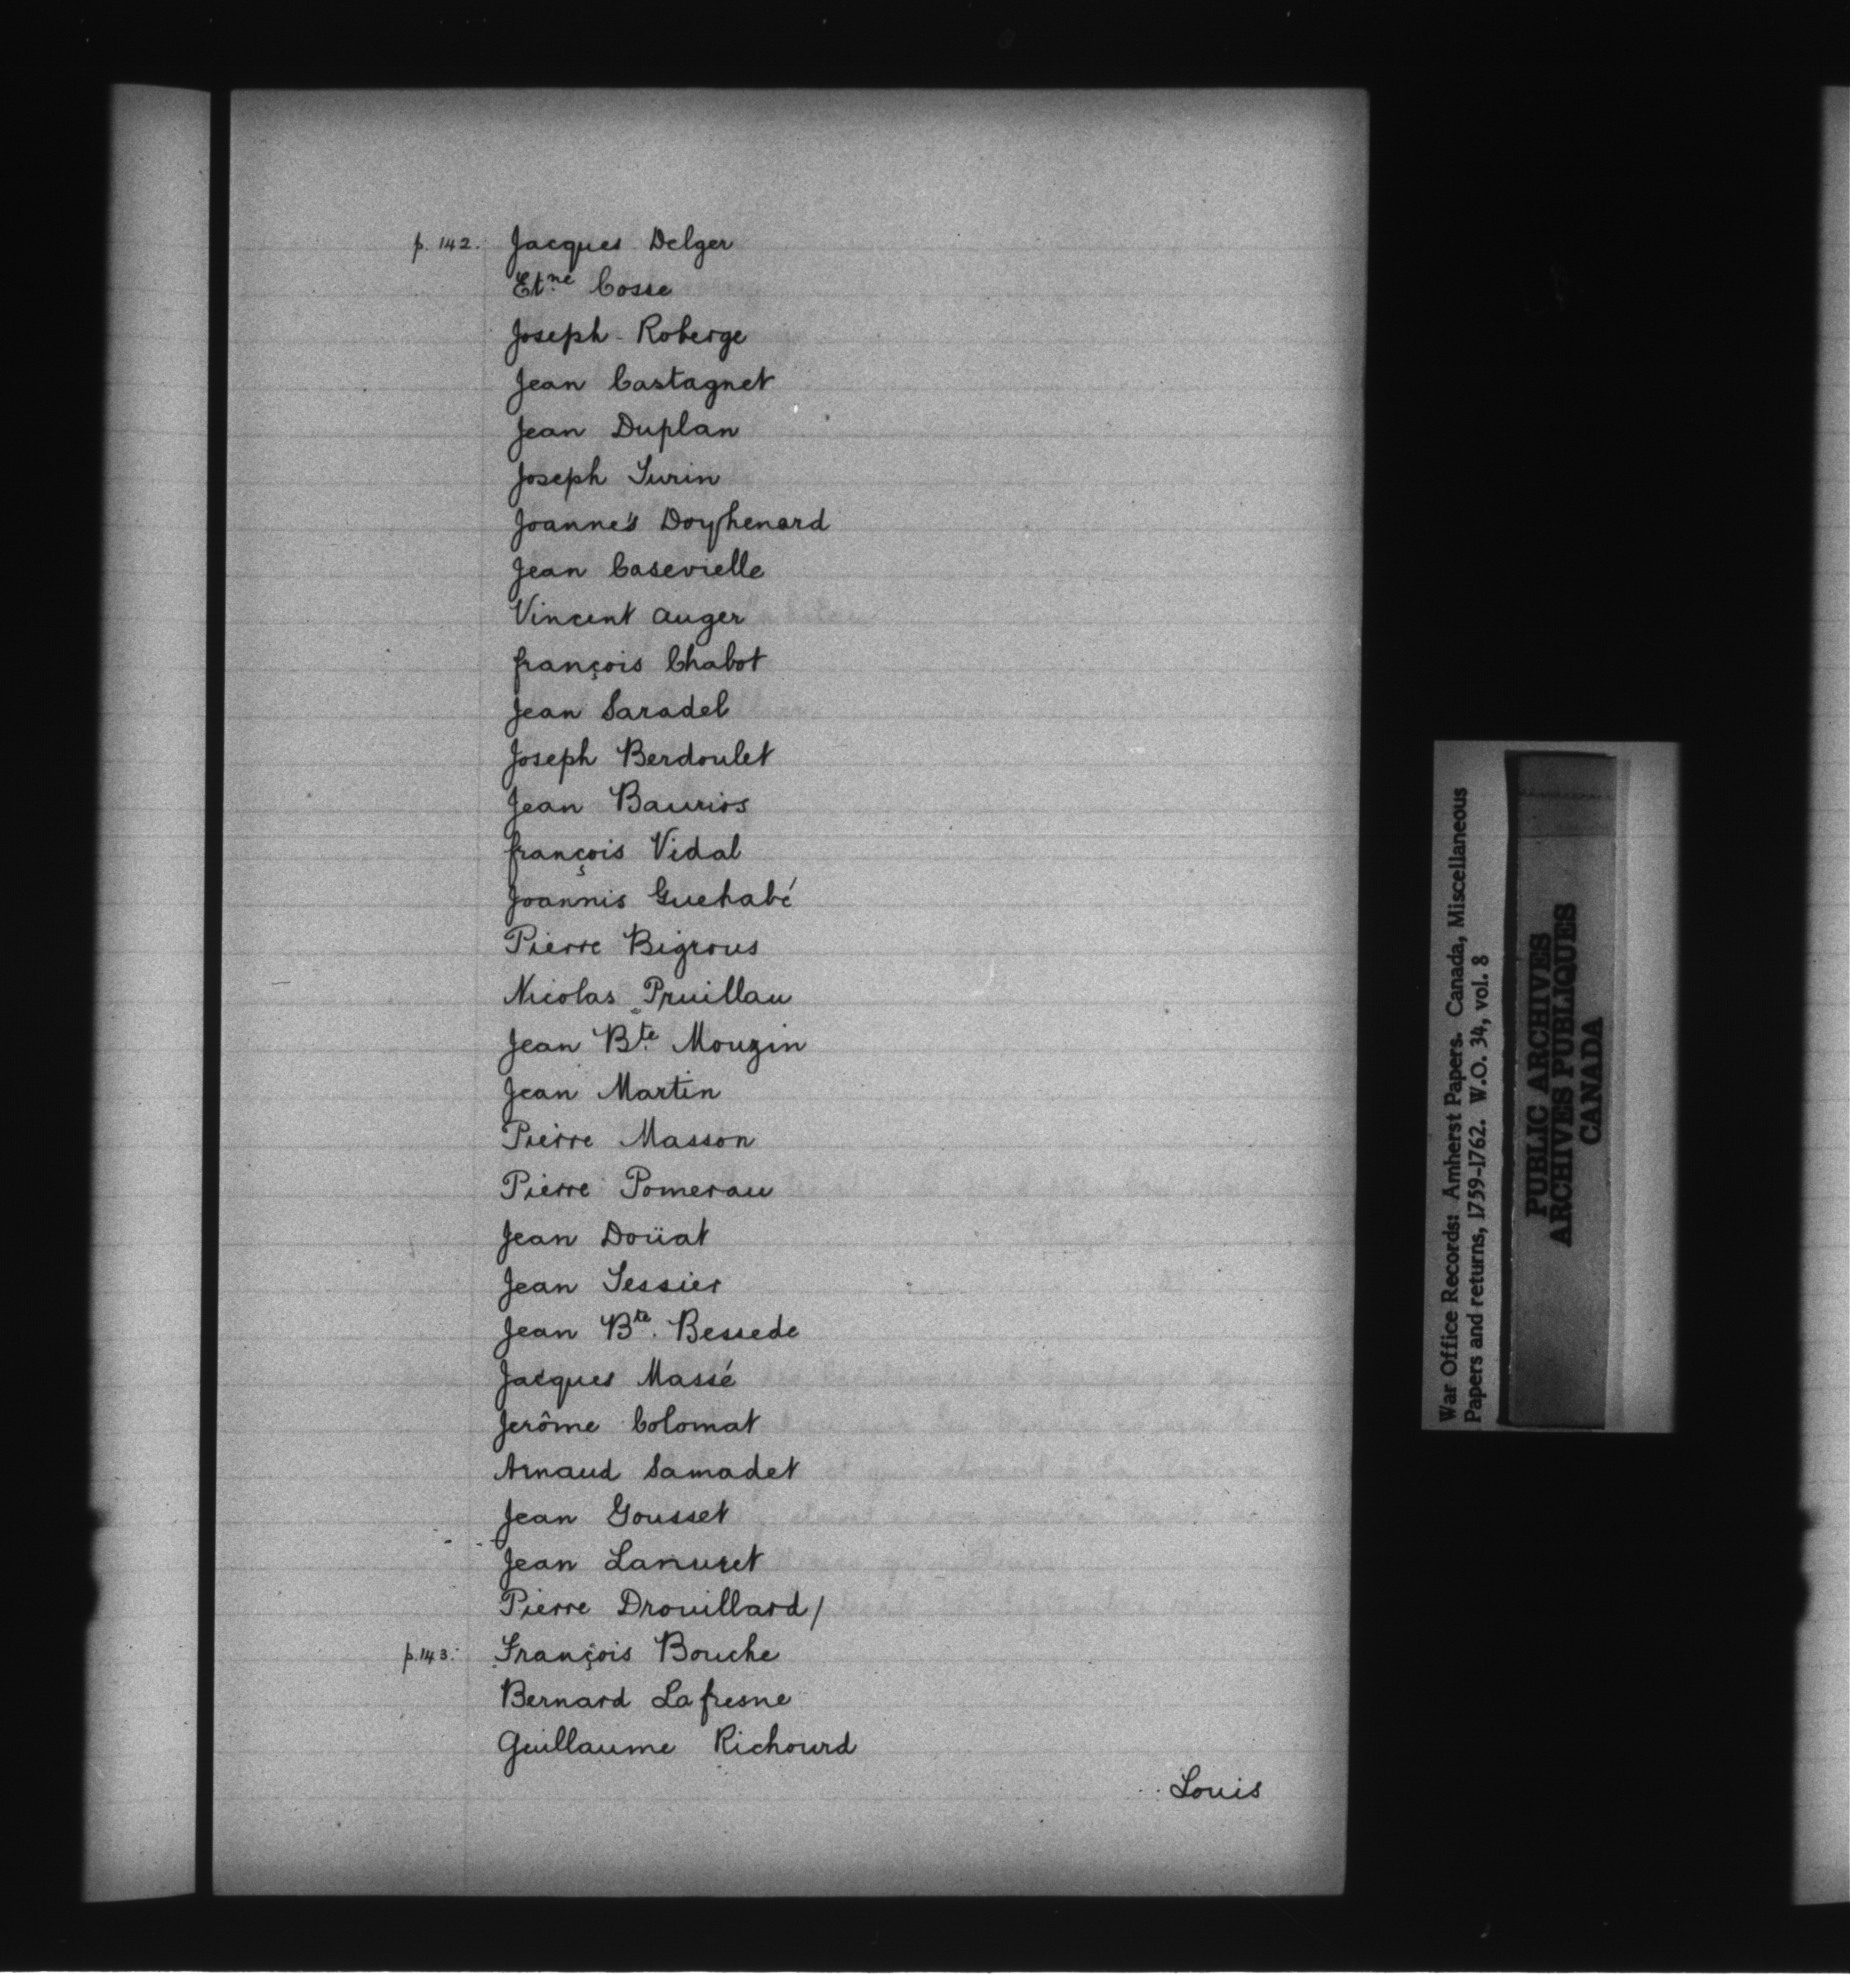 p. 142. Jacques Delger
Etne Cosse
Joseph - Roberge
Jean Castagnet
Jean Duplan
Joseph Turin
Joannes Doyhenard
Jean Casevielle
Vincent Auger
françois Chabot
Jean Saradel
Joseph Berdoulet
Jean Baurios
françois Vidal
Joannis Guehabé
Pierre Bigrous
Nicolas Pruillau
Jean Bte Mouzin
Jean Martin
Pierre Masson
Pierre Pomerau
Jean Doüat
Jean Tessier
Jean Bte. Bessede
Jacques Massé
Jerôme Colomat
Arnaud Samadet
Jean Gousset
Jean Lanuret
Pierre Drouillard/
p.143. François Bouche
Bernard Lafresne
Guillaume Richourd
Louis
War Office Records: Amherst Papers. Canada, Miscellaneous
Papers and returns, 1759-1762. W.O. 34, vol. 8
PUBLIC ARCHIVES
ARCHIVES PUBLIQUES
CANADA